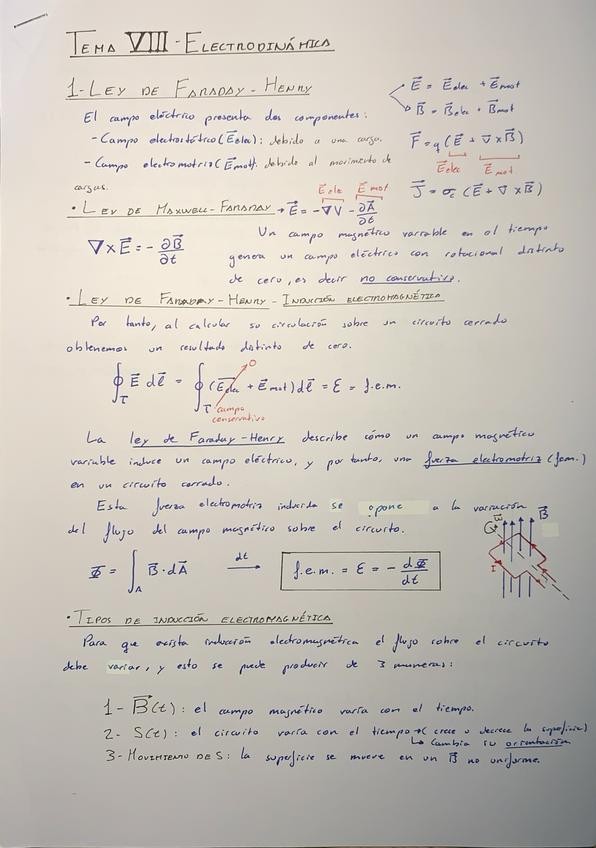 TEMA VIII - ELECTRODINÁMICA
1- LEY DE FARADAY - HENRY
E⃗ = E⃗elec + E⃗mot
B⃗ = B⃗elec + B⃗mot
El campo eléctrico presenta dos componentes:
- Campo electrostático (E⃗elec): debido a una carga.
F⃗ = q (E⃗ + v⃗ x B⃗)
E⃗elec E⃗mot
- Campo electromotriz (E⃗mot): debido al movimiento de
cargas.
J⃗ = σc (E⃗ + v⃗ x B⃗)
E⃗elec E⃗mot
• LEY DE MAXWELL-FARADAY → E⃗ = -∇V - ∂A⃗/∂t
∇ x E⃗ = - ∂B⃗/∂t
Un campo magnético variable en el tiempo
genera un campo eléctrico con rotacional distinto
de cero, es decir no conservativo.
• LEY DE FARADAY - HENRY - INDUCCIÓN ELECTROMAGNÉTICA
Por tanto, al calcular su circulación sobre un circuito cerrado
obtenemos un resultado distinto de cero.
∮T E⃗ dl⃗ = ∮T (E⃗elec + E⃗mot) dl⃗ = Ɛ = f.e.m.
0
campo
conservativo
La ley de Faraday-Henry describe cómo un campo magnético
variable induce un campo eléctrico, y por tanto, una fuerza electromotriz (fem.)
en un circuito cerrado.
Esta fuerza electromotriz inducida se opone a la variación
del flujo del campo magnético sobre el circuito.
B⃗
I
Φ = ∫A B⃗ · dA⃗ dt → f.e.m. = Ɛ = - dΦ/dt
• TIPOS DE INDUCCIÓN ELECTROMAGNÉTICA
Para que exista inducción electromagnética el flujo sobre el circuito
debe variar, y esto se puede producir de 3 maneras:
1- B⃗(t): el campo magnético varía con el tiempo.
2- S(t): el circuito varía con el tiempo → (crece o decrece la superficie)
↳ Cambia su orientación
3- MOVIMIENTO DE S: la superficie se mueve en un B⃗ no uniforme.